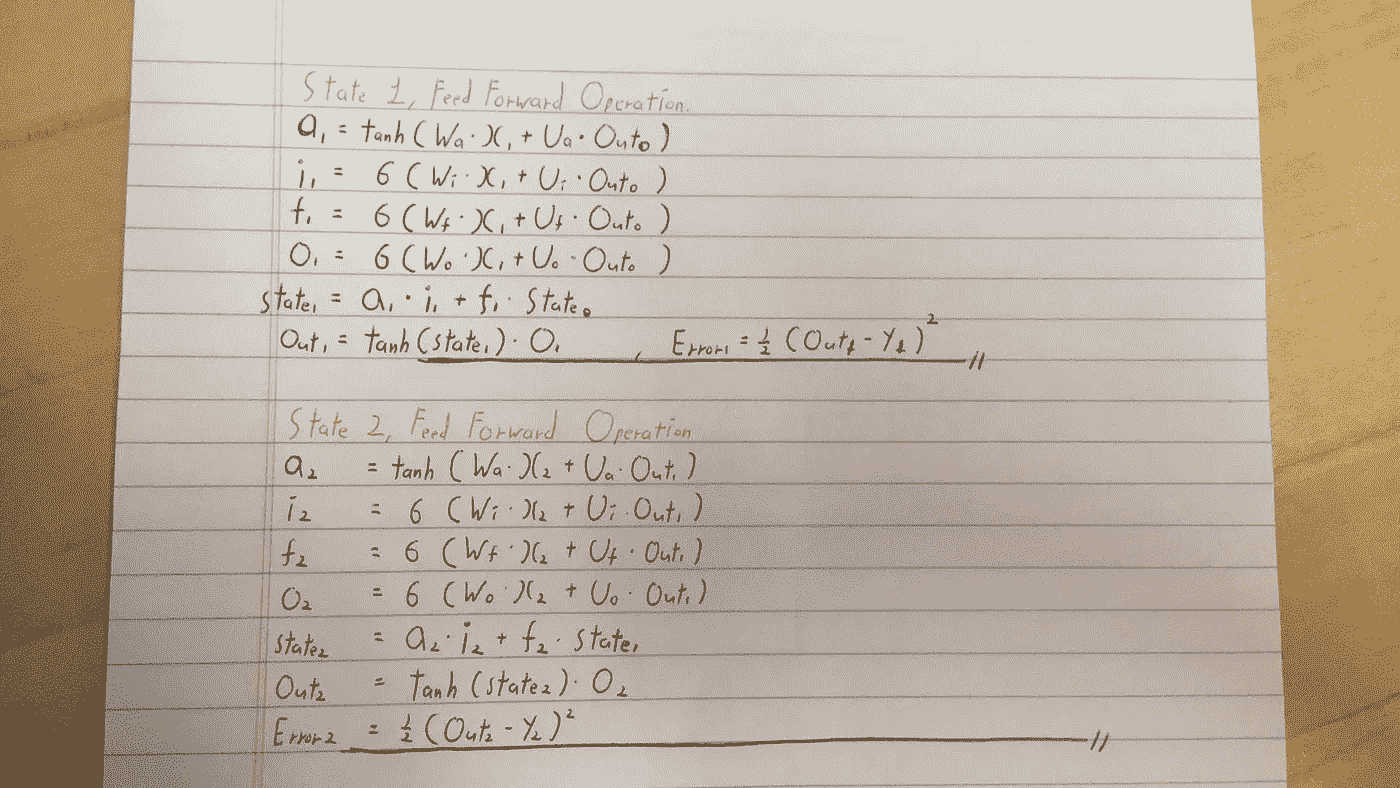 State 1, Feed Forward Operation.
a₁ = tanh(Wa·X₁ + Ua·Out₀)
i₁ = 6(Wi·X₁ + Ui·Out₀)
f₁ = 6(Wf·X₁ + Uf·Out₀)
O₁ = 6(Wo·X₁ + Uo·Out₀)
state₁ = a₁·i₁ + f₁·State₀
Out₁ = tanh(state₁)·O₁ , Error₁ = ½(Out₁ - Y₁)²
State 2, Feed Forward Operation
a₂ = tanh(Wa·X₂ + Ua·Out₁)
i₂ = 6(Wi·X₂ + Ui·Out₁)
f₂ = 6(Wf·X₂ + Uf·Out₁)
O₂ = 6(Wo·X₂ + Uo·Out₁)
state₂ = a₂·i₂ + f₂·state₁
Out₂ = tanh(state₂)·O₂
Error₂ = ½(Out₂ - Y₂)²